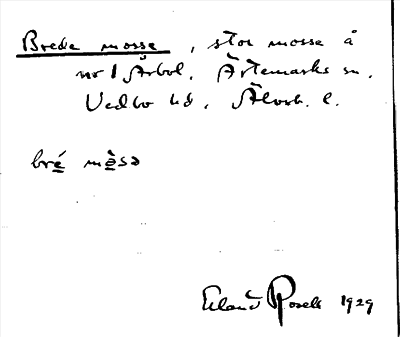 Brede mosse, stor mosse å
nr 1 Årbol, Ärtemarks sn.
Vedbo hd, Älvsb. l.
bré mèsə
Erland Rosell 1929